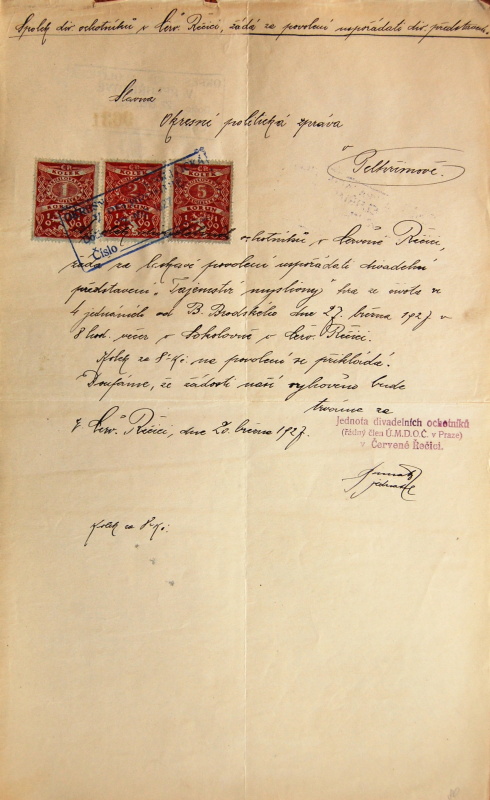 Spolek div. ochotníků v Červ. Řečici, žádá za povolení uspořádati div. představení.
Slavná
Okresní politická správa
v
Pelhřimově.
1 2 5
KOLEK KOLEK KOLEK
Číslo
ochotníků v Červené Řečici,
žádá za laskavé povolení uspořádati divadelní
představení „Tajemství myslivny" hra ze života ve
4 jednáních od B. Brodského dne 27. března 1927 v
8 hod. večer v Sokolovně v Červ. Řečici.
Kolek za 8 Kč. na povolení se přikládá.
Doufáme, že žádosti naší vyhověno bude
trváme za
V Červ. Řečici, dne 20. března 1927.
Jednota divadelních ochotníků
(Řádný člen Ú.M.D.O.Č. v Praze)
v Červené Řečici.
jednatel
Kolek za 8 Kč: